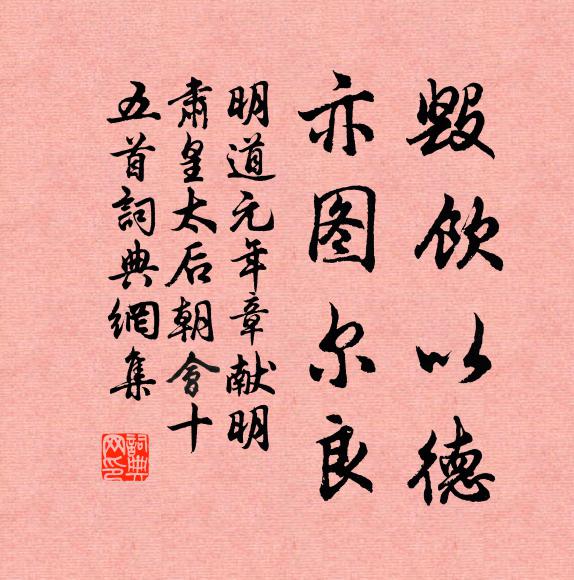 毁飲以德
亦图尔良
明道元年章献明
肃皇太后朝會十
五首詞典網集
詞典网印